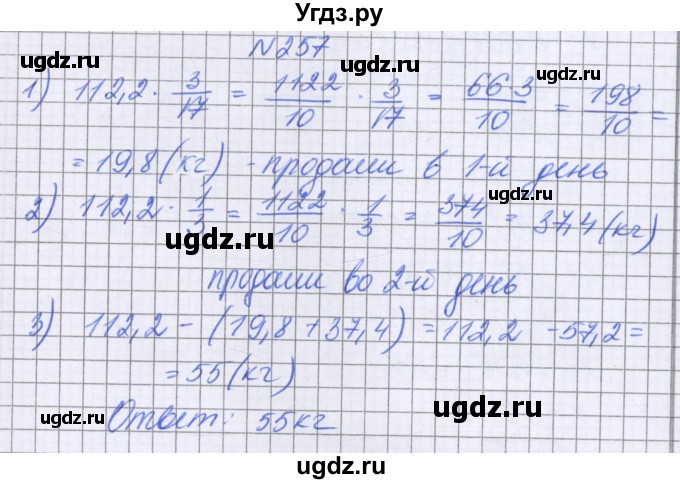 Угдз.ру
№257
1) 112,2 · 3/17 = 1122/10 · 3/17 = 66·3/10 = 198/10 =
= 19,8 (кг) - продали в 1-й день
2) 112,2 · 1/3 = 1122/10 · 1/3 = 374/10 = 37,4 (кг)
продали во 2-й день
3) 112,2 - (19,8 + 37,4) = 112,2 - 57,2 =
= 55 (кг)
Ответ: 55 кг
ugdz.ru
ugdz.ru
ugdz.ru
ugdz.ru
ugdz.ru
ugdz.ru
ugdz.ru
ugdz.ru
ugdz.ru
ugdz.ru
ugdz.ru